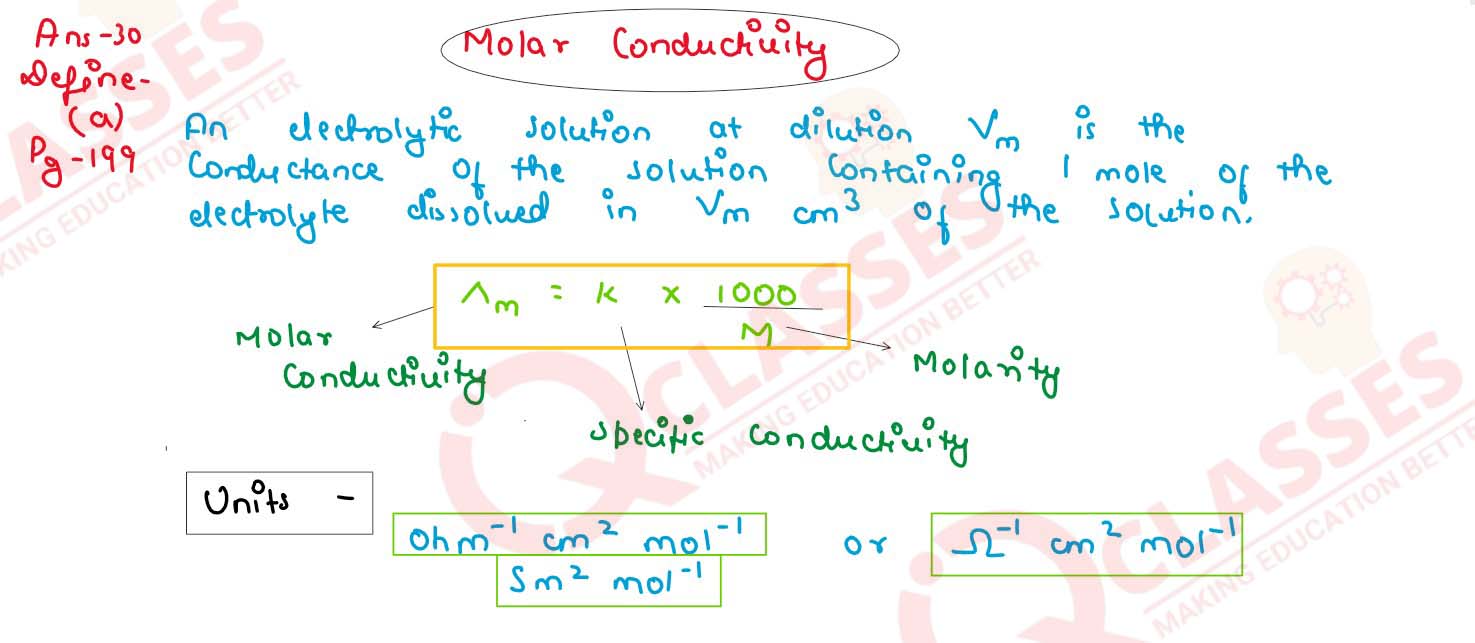 Ans-30
Define-
(a)
Pg-199
Molar Conductivity
An electrolytic solution at dilution Vm is the
Conductance of the solution Containing 1 mole of the
electrolyte dissolved in Vm cm³ of the solution.
Λm = k x 1000
M
Molar
Conductivity
Molarity
Specific Conductivity
Units -
Ohm⁻¹ cm² mol⁻¹ or Ω⁻¹ cm² mol⁻¹
Sm² mol⁻¹
CLASSES
MAKING EDUCATION BETTER